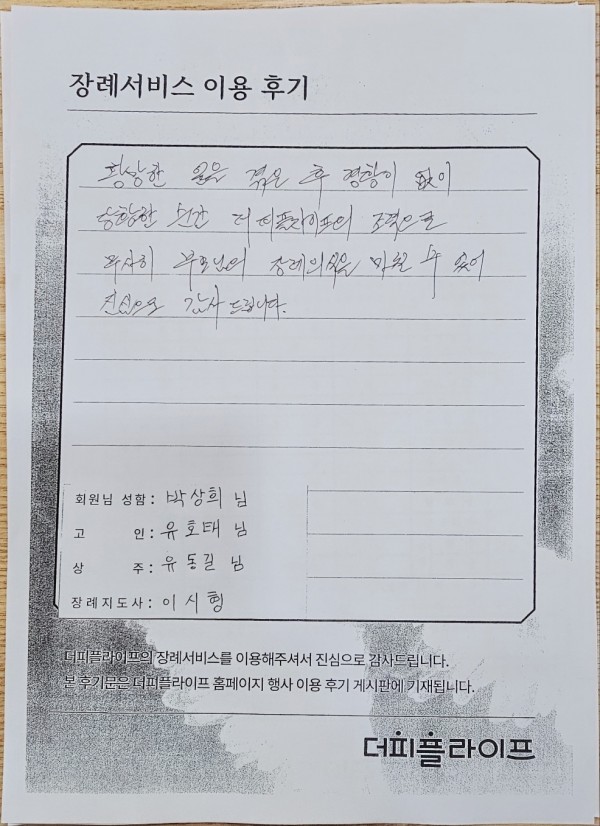 장례서비스 이용 후기
황망한 일을 겪은 후 경황이 없이
당황한 순간 더피플라이프의 조력으로
무사히 부모님의 장례의식을 마칠 수 있어
진심으로 감사 드립니다.
회원님 성함 : 박상희 님
고 인 : 유호태 님
상 주 : 유동길 님
장례지도사 : 이시형
더피플라이프의 장례서비스를 이용해주셔서 진심으로 감사드립니다.
본 후기문은 더피플라이프 홈페이지 행사 이용 후기 게시판에 기재됩니다.
더피플라이프